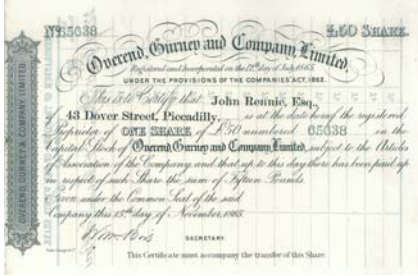 No. 65038 £50 SHARE.
Overend, Gurney and Company, Limited,
Registered and Incorporated on the 12th day of July, 1865,
UNDER THE PROVISIONS OF THE COMPANIES' ACT, 1862.
This is to Certify that John Rennie, Esq.,
of 43 Dover Street, Piccadilly, is at the date hereof the registered
Proprietor of ONE SHARE of £50 numbered 65038 in the
Capital Stock of Overend Gurney and Company, Limited, subject to the Articles
of Association of the Company and that up to this day there has been paid up
in respect of such Share the sum of Fifteen Pounds.
Given under the Common Seal of the said
Company this 15th day of November, 1865.
SECRETARY.
This Certificate must accompany the transfer of this Share.
OVEREND, GURNEY & COMPANY, LIMITED.